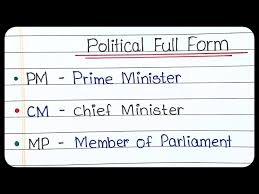 Political Full Form
• PM - Prime Minister
• CM - Chief Minister
• MP - Member of Parliament